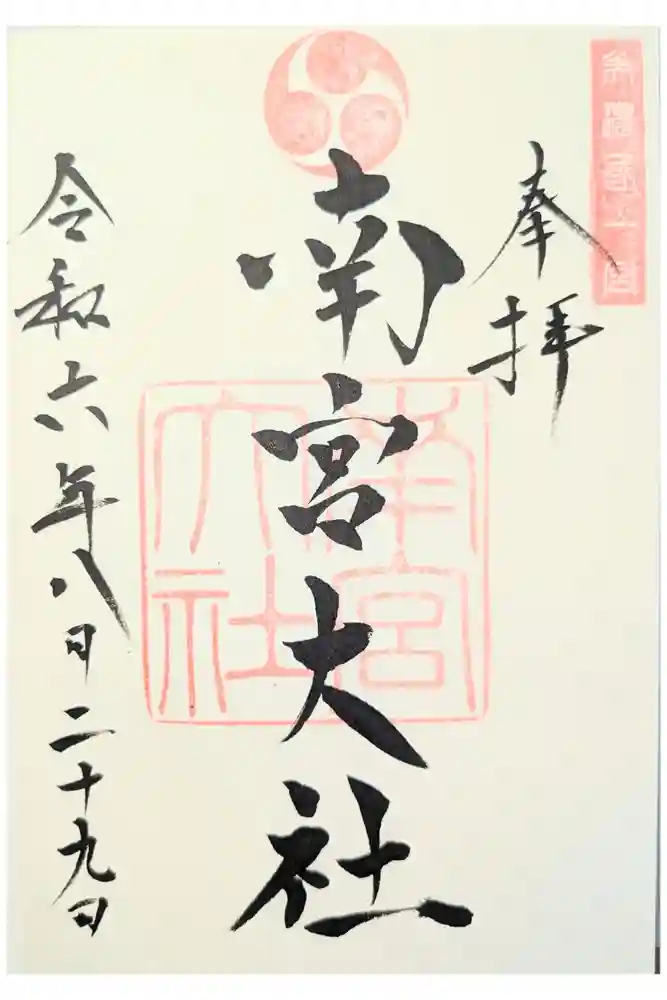 奉拝
南宮大社
南宮
大社
令和六年八月二十九日